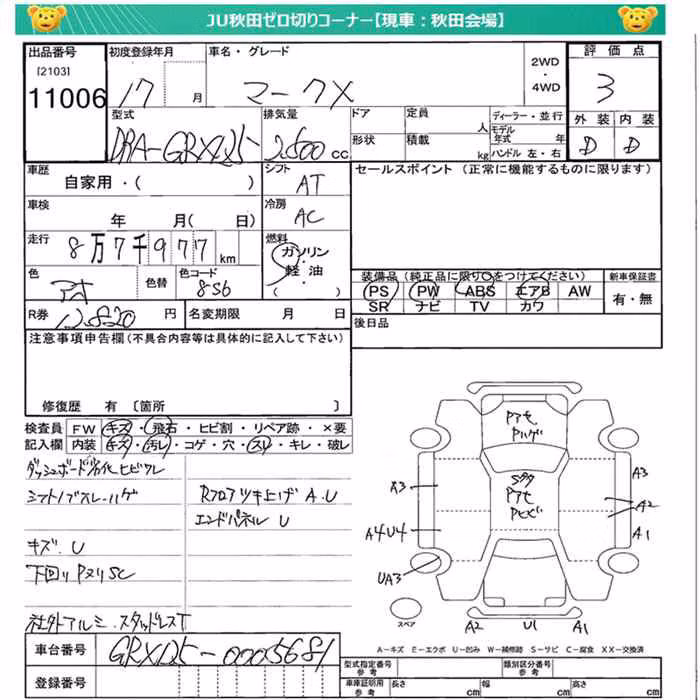 JU秋田ゼロ切りコーナー【現車:秋田会場】
出品番号 [2103] 11006
初度登録年月 17 月
車名・グレード マークX
2WD・4WD
評価点 3
外装 D 内装 D
型式 DBA-GRX125
排気量 2,500cc
ドア 形状
定員 人 積載 kg
ディーラー・並行
モデル年式 年
ハンドル 左・右
車歴 自家用・( )
シフト AT
セールスポイント(正常に機能するものに限ります)
車検 年 月( 日)
冷房 AC
走行 8万7千977km
燃料 ガソリン・軽油・( )
色 色替 色コード 8S6
装備品(純正品に限り○をつけてください)
PS PW ABS エアB AW
SR ナビ TV カワ
新車保証書 有・無
R券 12,820円
名変期限 月 日
後日品
注意事項申告欄(不具合内容等は具体的に記入して下さい)
修復歴 有〔箇所 〕
検査員記入欄
FW キズ・飛石・ヒビ割・リペア跡・×要
内装 キズ・汚レ・コゲ・穴・スレ・キレ・破レ
ダッシュボード劣化ヒビワレ
シフトノブスレ・ハゲ
Rフロアツキ上ゲ A.U
エンドパネル U
キズ.U
下回リPヌリSC
社外アルミ.スタッドレスT
Pアセ
Pハゲ
Pアセ
Pヒビ
A3
A3
A2
A4U4
A1
UA3
スペア
A2 U1 A1
A-キズ E-エクボ U-凹み W-補修跡 S-サビ C-腐食 XX-交換済
車台番号 GRX125-0005681
登録番号
型式指定番号 類別区分番号
車庫証明用参考 長さ cm 幅 cm 高さ cm